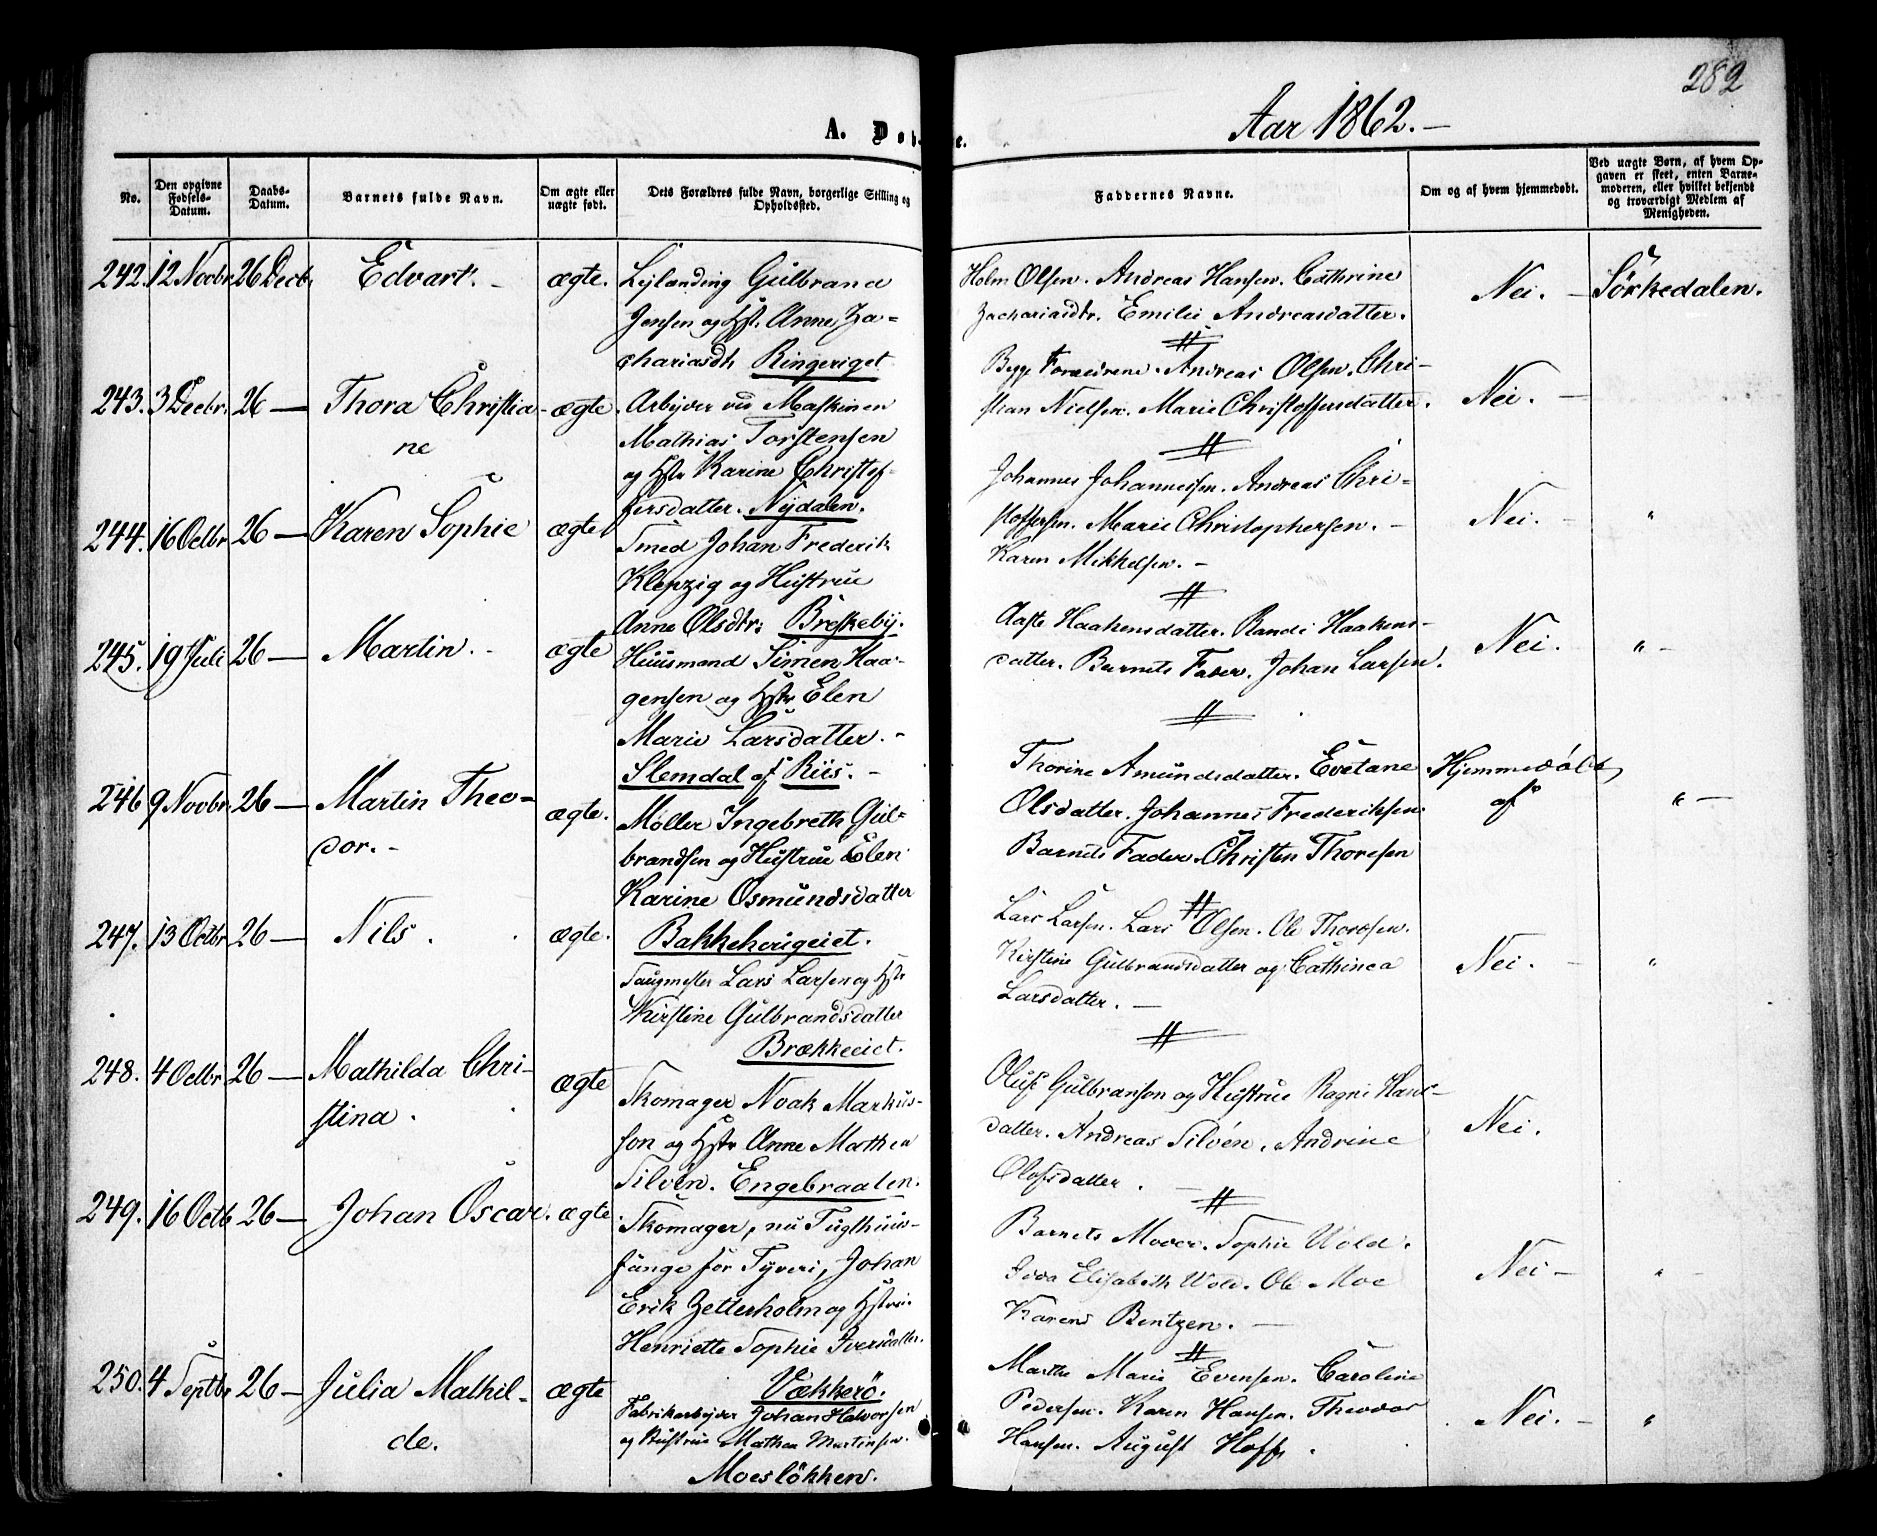 282
Aar 1862.—
A. Døb
e.
No.
Den opgivne Fødsels-Datum.
Daabs-Datum.
Barnets fulde Navn.
Om ægte eller uægte født.
Dets Forældres fulde Navn, borgerlige Stilling og Opholdssted.
Faddernes Navne.
Om og af hvem hjemmedøbt.
Ved uægte Børn, af hvem Opgaven er skeet, enten Barnemoderen, eller hvilket bekjendt og troværdigt Medlem af Menigheden.
242. 12 Novbr 26 Decb. Edvart. - ægte.
Lejlænding Gulbrand
Jensen og Hst. Anne Za-
chariasdt. Ringeriget
Holm Olsen. Andreas Hansen. Cathrine
Zachariasdtr. Emilie Andreasdatter.
Nei. — Sörkedalen.
243. 3 Decbr. 26 — Thora Christia- ægte
ne
Arbeider ved Maskinen
Mathias Torstensen
og Hstr Karine Christof-
fersdatter. Nydalen.
Begge Forældrene. Andreas Olsen. Chri-
stian Nielsen. Marie Christoffersdatter.
Nei. —
244. 16 Octbr 26 — Karen Sophie ægte
Smed Johan Frederik
Klepzig og Hustrue
Anne Olsdtr: Briskeby.
Johannes Johannessen. Andreas Chri-
stoffersen. Marie Christophersen. -
Karen Mikkelsen. -
Nei. — "
245. 19 Juli 26 — Martin. - ægte
Huusmand Simen Haa-
gensen og Hstr Elen
Marie Larsdatter. -
Slemdal af Riis. -
Aaste Haakensdatter. Randi Haakens-
datter. Barnets Fader. Johan Larsen.
Nei. - " -
246 9 Novbr. 26 — Martin Theo-
dor. - ægte.
Møller Ingebreth Gul-
brandsen og Hustrue Elen
Karine Osmundsdatter
Bakkehougeiet.
Thorine Amundsdatter. Evetane
Olsdatter. Johannes Frederiksen.
Barnets Fader. Christen Thoresen
Hjemmedöbt
af " —
247. 13 Octbr 26 — Nils. ægte.
Saugmester Lars Larsen og Hstr
Kirstine Gulbrandsdatter
Brækkeeiet.
Lars Larsen. Lars Olsen. Ole Thoresen.
Kirstine Gulbrandsdatter og Cathinca
Larsdatter. —
Nei. — "
248. 4 Octbr 26 — Mathilda Chri-
stina. ægte
Skomager Noak Markus-
son og Hstr Anne Mathea
Silvén. Engebraaten.
Oluf Gulbranson og Hustrue Ragni Hans-
datter. Andreas Silvén. Andrine
Olofsdatter. -
Nei.
249. 16 Octb 26 — Johan Oscar. ægte
Skomager, nu Tugthuus-
fange for Tyveri, Johan
Erik Zetterholm og Hstrue
Henriette Sophie Iversdatter.
Vækkerö.
Barnets Moder. Sophie Wold.
Ida Elisabeth Wold. Ole Moe
Karen Bentzen. —
Nei — "
250. 4 Septbr 26 — Julia Mathil-
de. ægte
Fabrikarbejder Johan Halvorsen
og Hustrue Mathea Martinsen.
Moeslökken.
Marthe Marie Evensen. Caroline
Pedersen. Karen Hansen. Theodor
Hansen. August Hoff.
Nei. — "